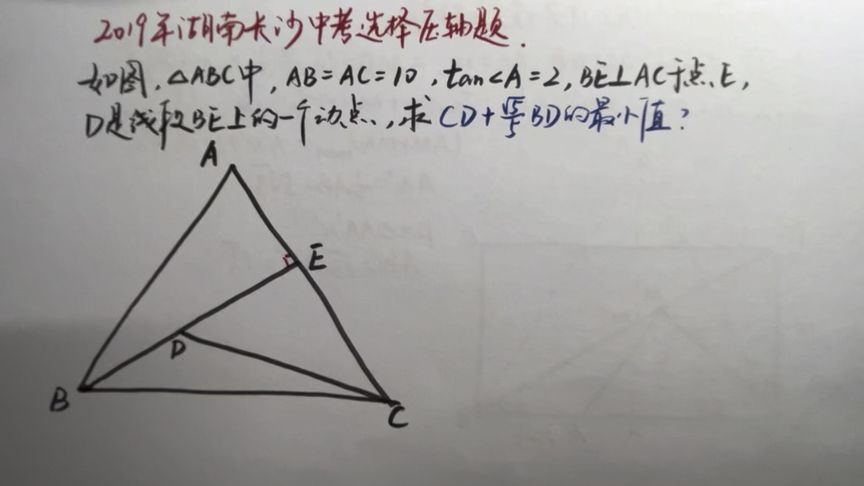 2019年湖南长沙中考选择压轴题.
如图,△ABC中,AB=AC=10,tan∠A=2,BE⊥AC于点E,
D是线段BE上的一个动点,求CD+√5/5BD的最小值?
A
E
D
B
C